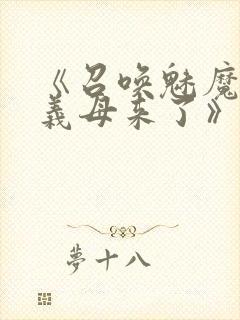 《召唤魅魔
義母来了》
夢十八